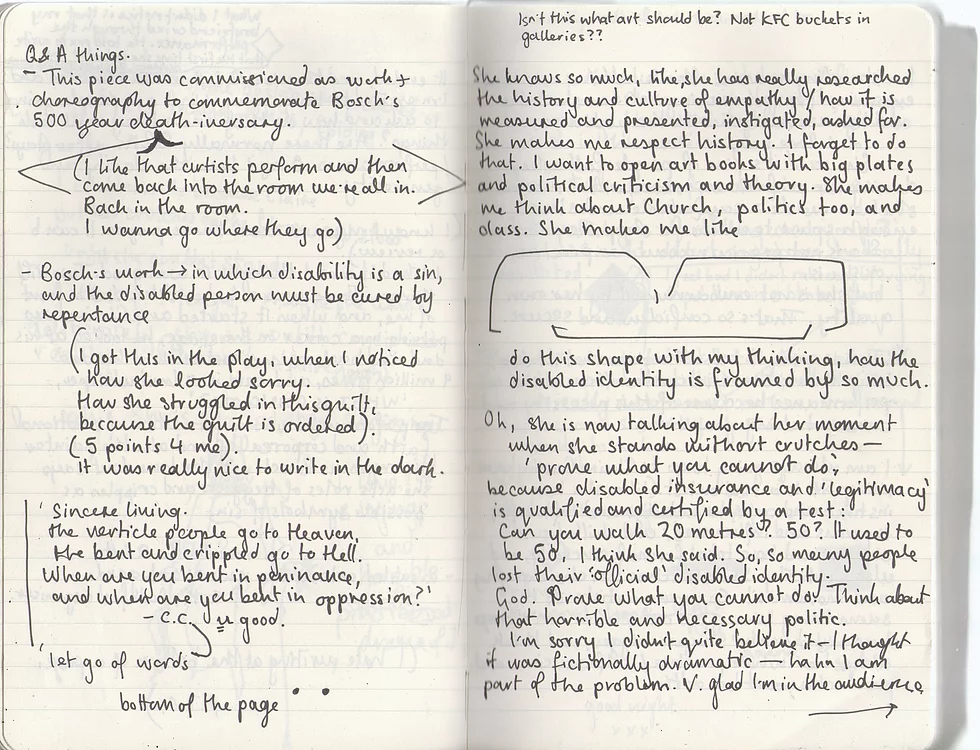 Q&A things.
- This piece was commissioned as work +
choreography to commemorate Bosch's
500 year death-iversary.
(I like that artists perform and then
come back into the room we're all in.
Back in the room.
I wanna go where they go)
- Bosch's work → in which disability is a sin,
and the disabled person must be cured by
repentance
(I got this in the play, when I noticed
how she looked sorry.
How she struggled in this guilt,
because the guilt is ordered).
(5 points 4 me).
It was really nice to write in the dark.
'Sincere lining.
the verticle people go to Heaven,
the bent and crippled go to Hell.
When are you bent in peninance,
and when are you bent in oppression?'
- C.C. u good.
'let go of words'
bottom of the page
Isn't this what art should be? Not KFC buckets in
galleries??
She knows so much, like, she has really researched
the history and culture of empathy / how it is
measured and presented, instigated, asked for.
She makes me respect history. I forget to do
that. I want to open art books with big plates
and political criticism and theory. She makes
me think about Church, politics too, and
class. She makes me like
do this shape with my thinking, how the
disabled identity is framed by so much.
Oh, she is now talking about her moment
when she stands without crutches —
'prove what you cannot do',
because disabled insurance and 'legitimacy'
is qualified and certified by a test:
Can you walk 20 metres? 50? It used to
be 50, I think she said. So, so many people
lost their 'official' disabled identity.
God. Prove what you cannot do! Think about
that horrible and necessary politic.
I'm sorry I didn't quite believe it – I thought
it was fictionally dramatic — haha I am
part of the problem. V. glad I'm in the audience